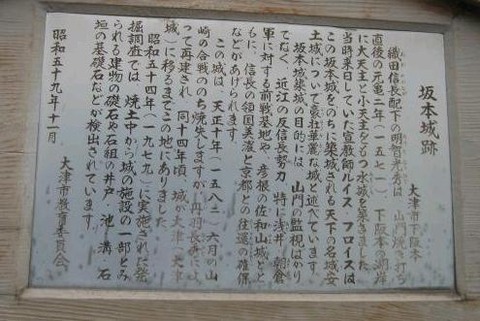 坂本城跡
大津市下阪本
織田信長配下の明智光秀は 山門焼き打ち
直後の元亀二年(一五七一) 下阪本の湖岸
に大天主と小天主をもつ水城を築きました
当時来日していた宣教師ルイス・フロイスは
この坂本城をのちに築城される天下の名城安
土城について豪壮華麗な城と述べています。
坂本城築城の目的には 山門の監視ばかり
でなく、近江の反信長勢力 特に浅井 朝倉
軍に対する前戦基地や 彦根の佐和山城とと
もに、信長の領国美濃と京都との往還の確保
などがあげられます。
この城は、天正十年(一五八二)六月の山
崎の合戦ののち焼失しますが、丹羽長秀によ
って再建され 同十四年頃 城が大津(大津
城)に移るまでこの地にありました
昭和五十四年(一九七九)に実施された発
掘調査では 焼土中から城の施設の一部とみ
られる建物の礎石や石組の井戸 池 溝 石
垣の基礎石などが検出されています。
大津市教育委員会
昭和五十九年十一月